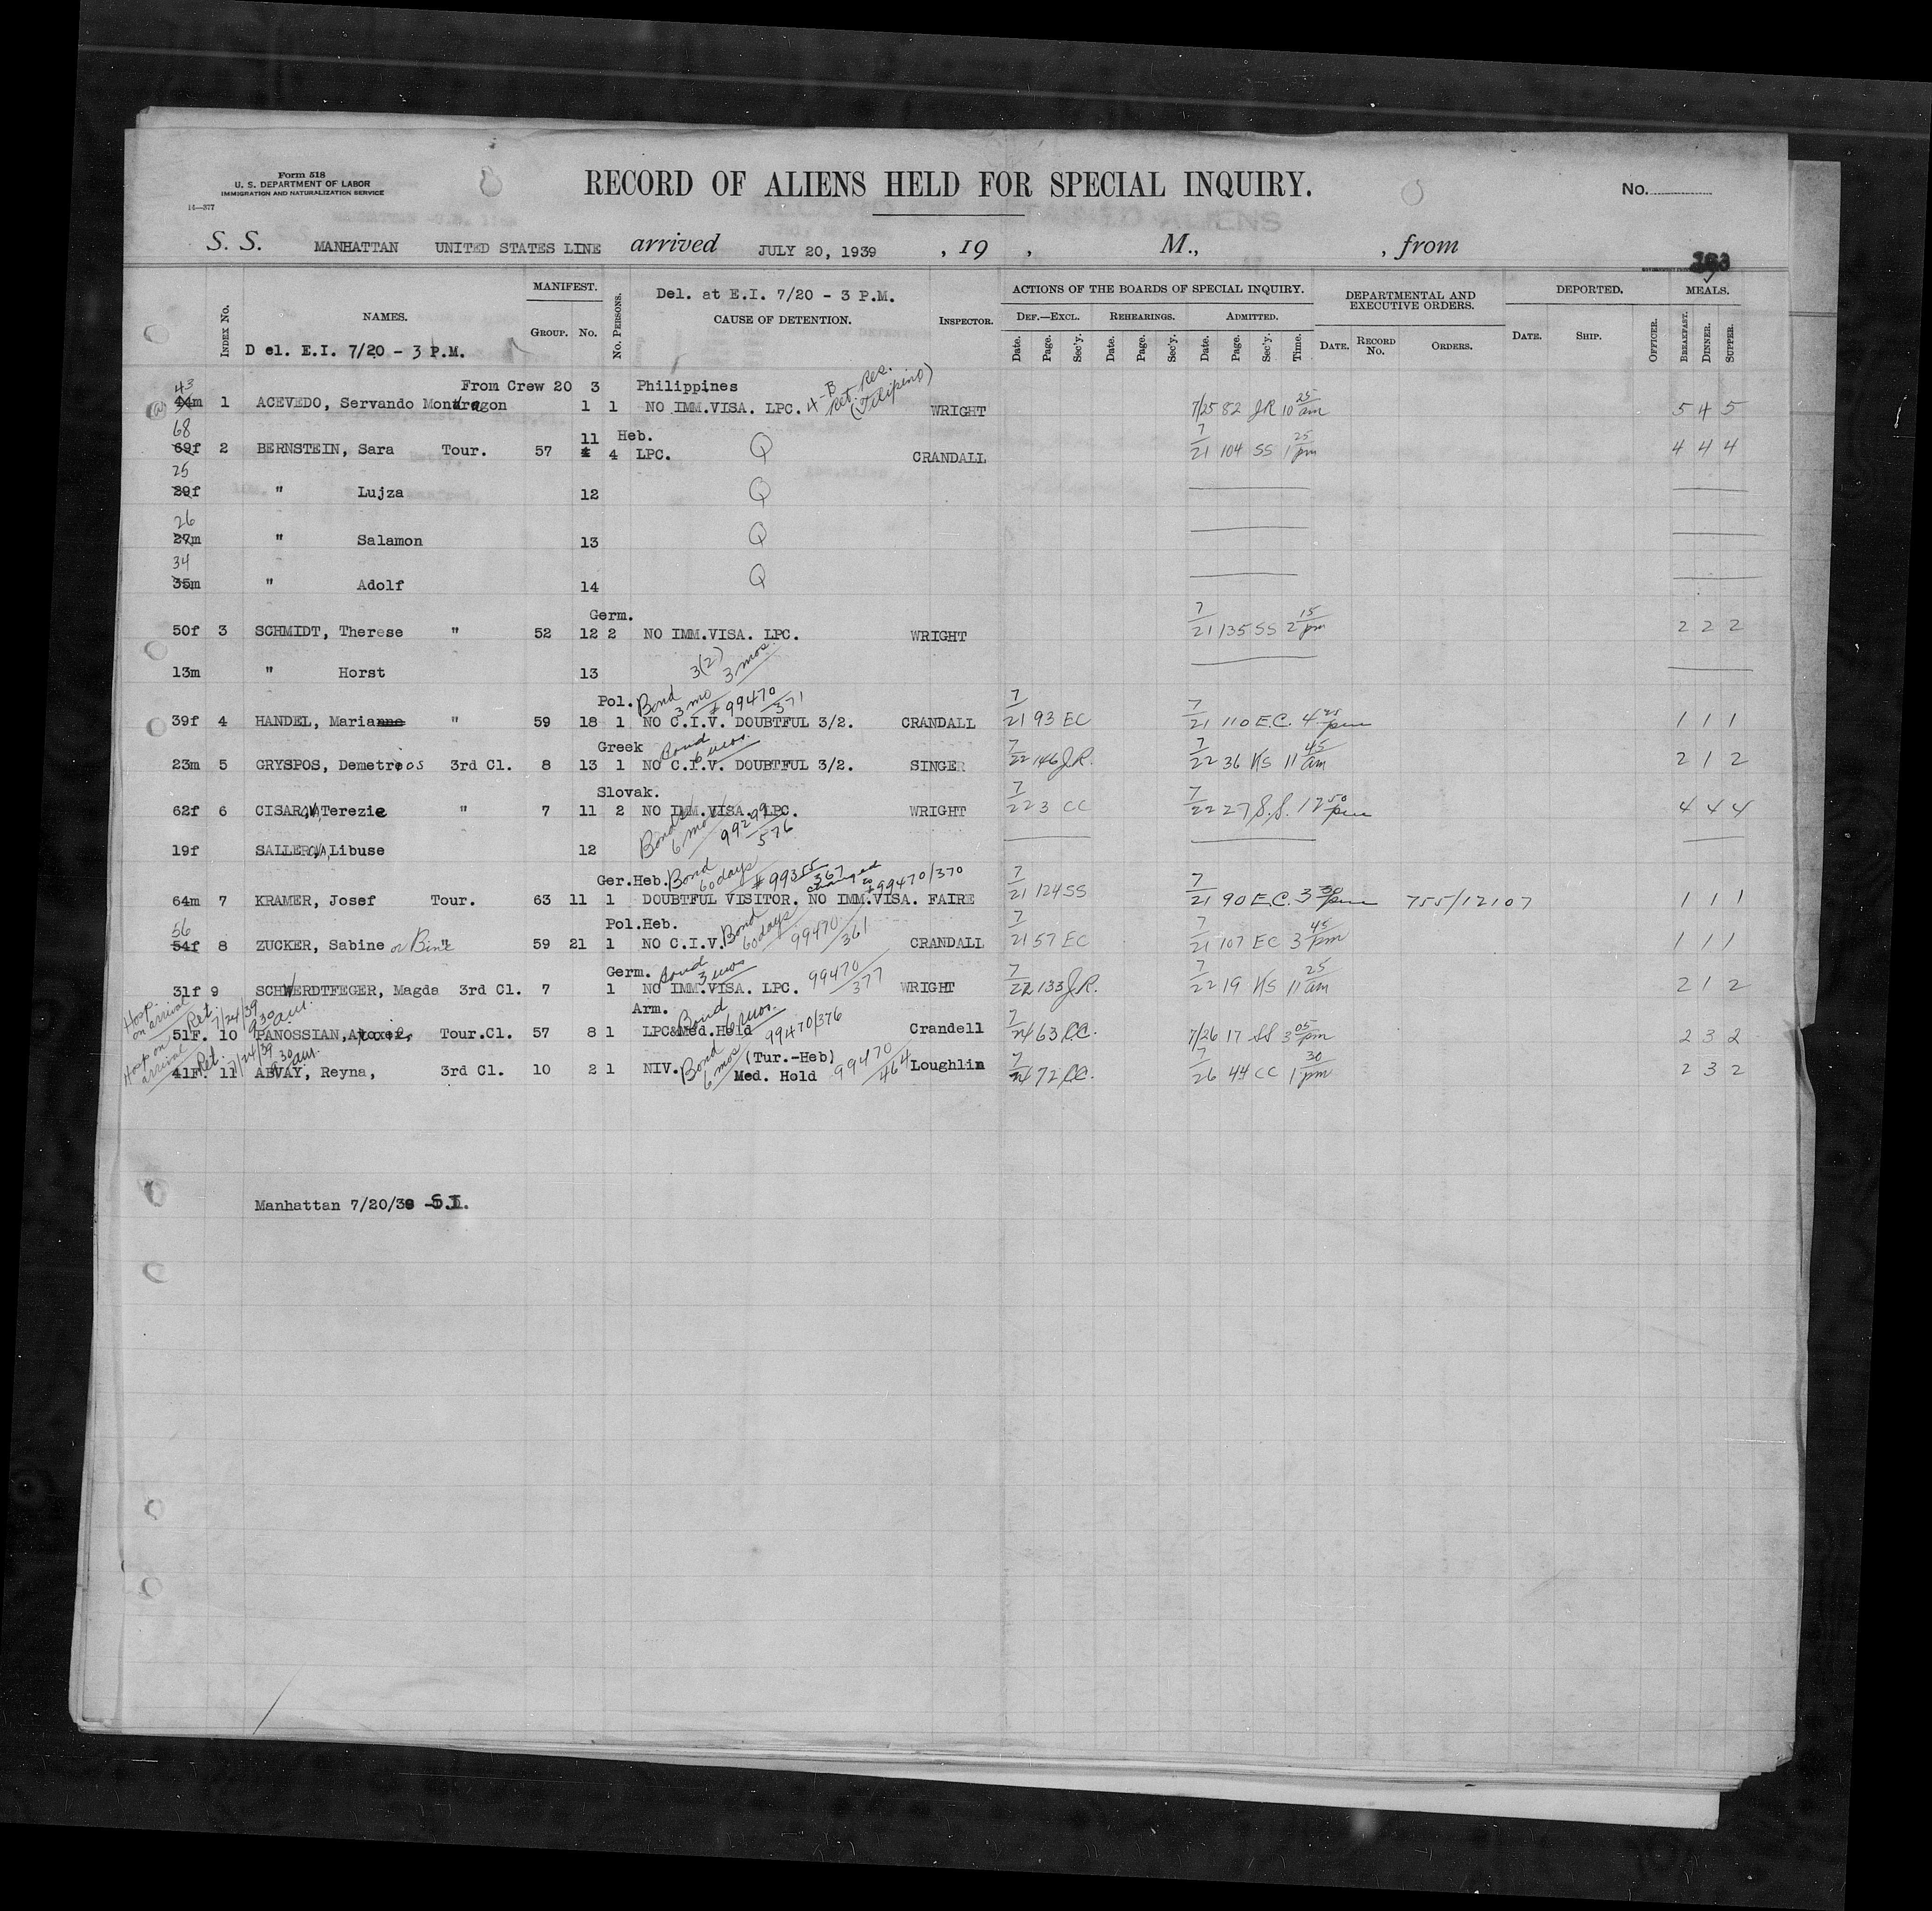 Form 518
U. S. DEPARTMENT OF LABOR
IMMIGRATION AND NATURALIZATION SERVICE
14—377
RECORD OF ALIENS HELD FOR SPECIAL INQUIRY.
No.
S. S. MANHATTAN UNITED STATES LINE arrived JULY 20, 1939 , 19 , M., , from
INDEX No. NAMES. MANIFEST. GROUP. No. No. PERSONS. Del. at E.I. 7/20 - 3 P.M. CAUSE OF DETENTION. INSPECTOR. ACTIONS OF THE BOARDS OF SPECIAL INQUIRY. DEPARTMENTAL AND EXECUTIVE ORDERS. DEPORTED. MEALS.
DEF.—EXCL. REHEARINGS. ADMITTED.
Date. Page. Sec'y. Date. Page. Sec'y. Date. Page. Sec'y. Time. DATE. RECORD No. ORDERS. DATE. SHIP. OFFICER. BREAKFAST. DINNER. SUPPER.
D el. E.I. 7/20 - 3 P.M.
43 From Crew 20 3 Philippines 4-B Ret. Res. (Filipino)
44m 1 ACEVEDO, Servando Mondragon 1 1 NO IMM.VISA. LPC. WRIGHT 7/25 82 JR 10 25 am 5 4 5
68 11 Heb.
69f 2 BERNSTEIN, Sara Tour. 57 4 LPC. Q CRANDALL 7/21 104 SS 1 25 pm 4 4 4
25
29f " Lujza 12 Q
26
27m " Salamon 13 Q
34
35m " Adolf 14 Q
Germ.
50f 3 SCHMIDT, Therese " 52 12 2 NO IMM.VISA. LPC. WRIGHT 7/21 135 SS 2 15 pm 2 2 2
3(2) 3 mos.
13m " Horst 13
Pol. Bond 3 mo # 99470/371
39f 4 HANDEL, Marianne " 59 18 1 NO C.I.V. DOUBTFUL 3/2. CRANDALL 7/21 93 EC 7/21 110 E.C. 4 25 pm 1 1 1
Greek Bond 6 mos.
23m 5 GRYSPOS, Demetrios 3rd Cl. 8 13 1 NO C.I.V. DOUBTFUL 3/2. SINGER 7/22 146 J.R. 7/22 36 NS 11 45 am 2 1 2
Slovak.
62f 6 CISAROVA, Terezie " 7 11 2 NO IMM.VISA. LPC. WRIGHT 7/22 3 CC 7/22 27 S.S. 12 50 pm 4 4 4
Bonds 6 mos 99299/576
19f SALLEROVA, Libuse 12
Ger.Heb. Bond 60 days # 99355/367 changed to # 99470/370
64m 7 KRAMER, Josef Tour. 63 11 1 DOUBTFUL VISITOR. NO IMM.VISA. FAIRE 7/21 124 SS 7/21 90 E.C. 3 30 pm 755/12107 1 1 1
56 Pol.Heb. Bond 60 days 99470/361
54f 8 ZUCKER, Sabine or Bine " 59 21 1 NO C.I.V. CRANDALL 7/21 57 EC 7/21 107 EC 3 45 pm 1 1 1
Germ. Bond 3 mos 99470/377
31f 9 SCHWERDTFEGER, Magda 3rd Cl. 7 1 NO IMM.VISA. LPC. WRIGHT 7/22 133 J.R. 7/22 19 NS 11 25 am 2 1 2
Hosp. on arrival Ret. 7/24/39 9 30 am. Arm. Bond 6 mos. 99470/376
51F. 10 PANOSSIAN, Tour.Cl. 57 8 1 LPC&Med.Hold Crandell 7/24 63 CC. 7/26 17 SS 3 05 pm 2 3 2
Hosp on arrival Ret. 7/24/39 9 30 am. Bond 6 mos (Tur.-Heb) 99470/464
41F. 11 ABVAY, Reyna, 3rd Cl. 10 2 1 NIV. Med. Hold Loughlin 7/24 72 CC. 7/26 44 CC 1 30 pm 2 3 2
Manhattan 7/20/39 S.I.